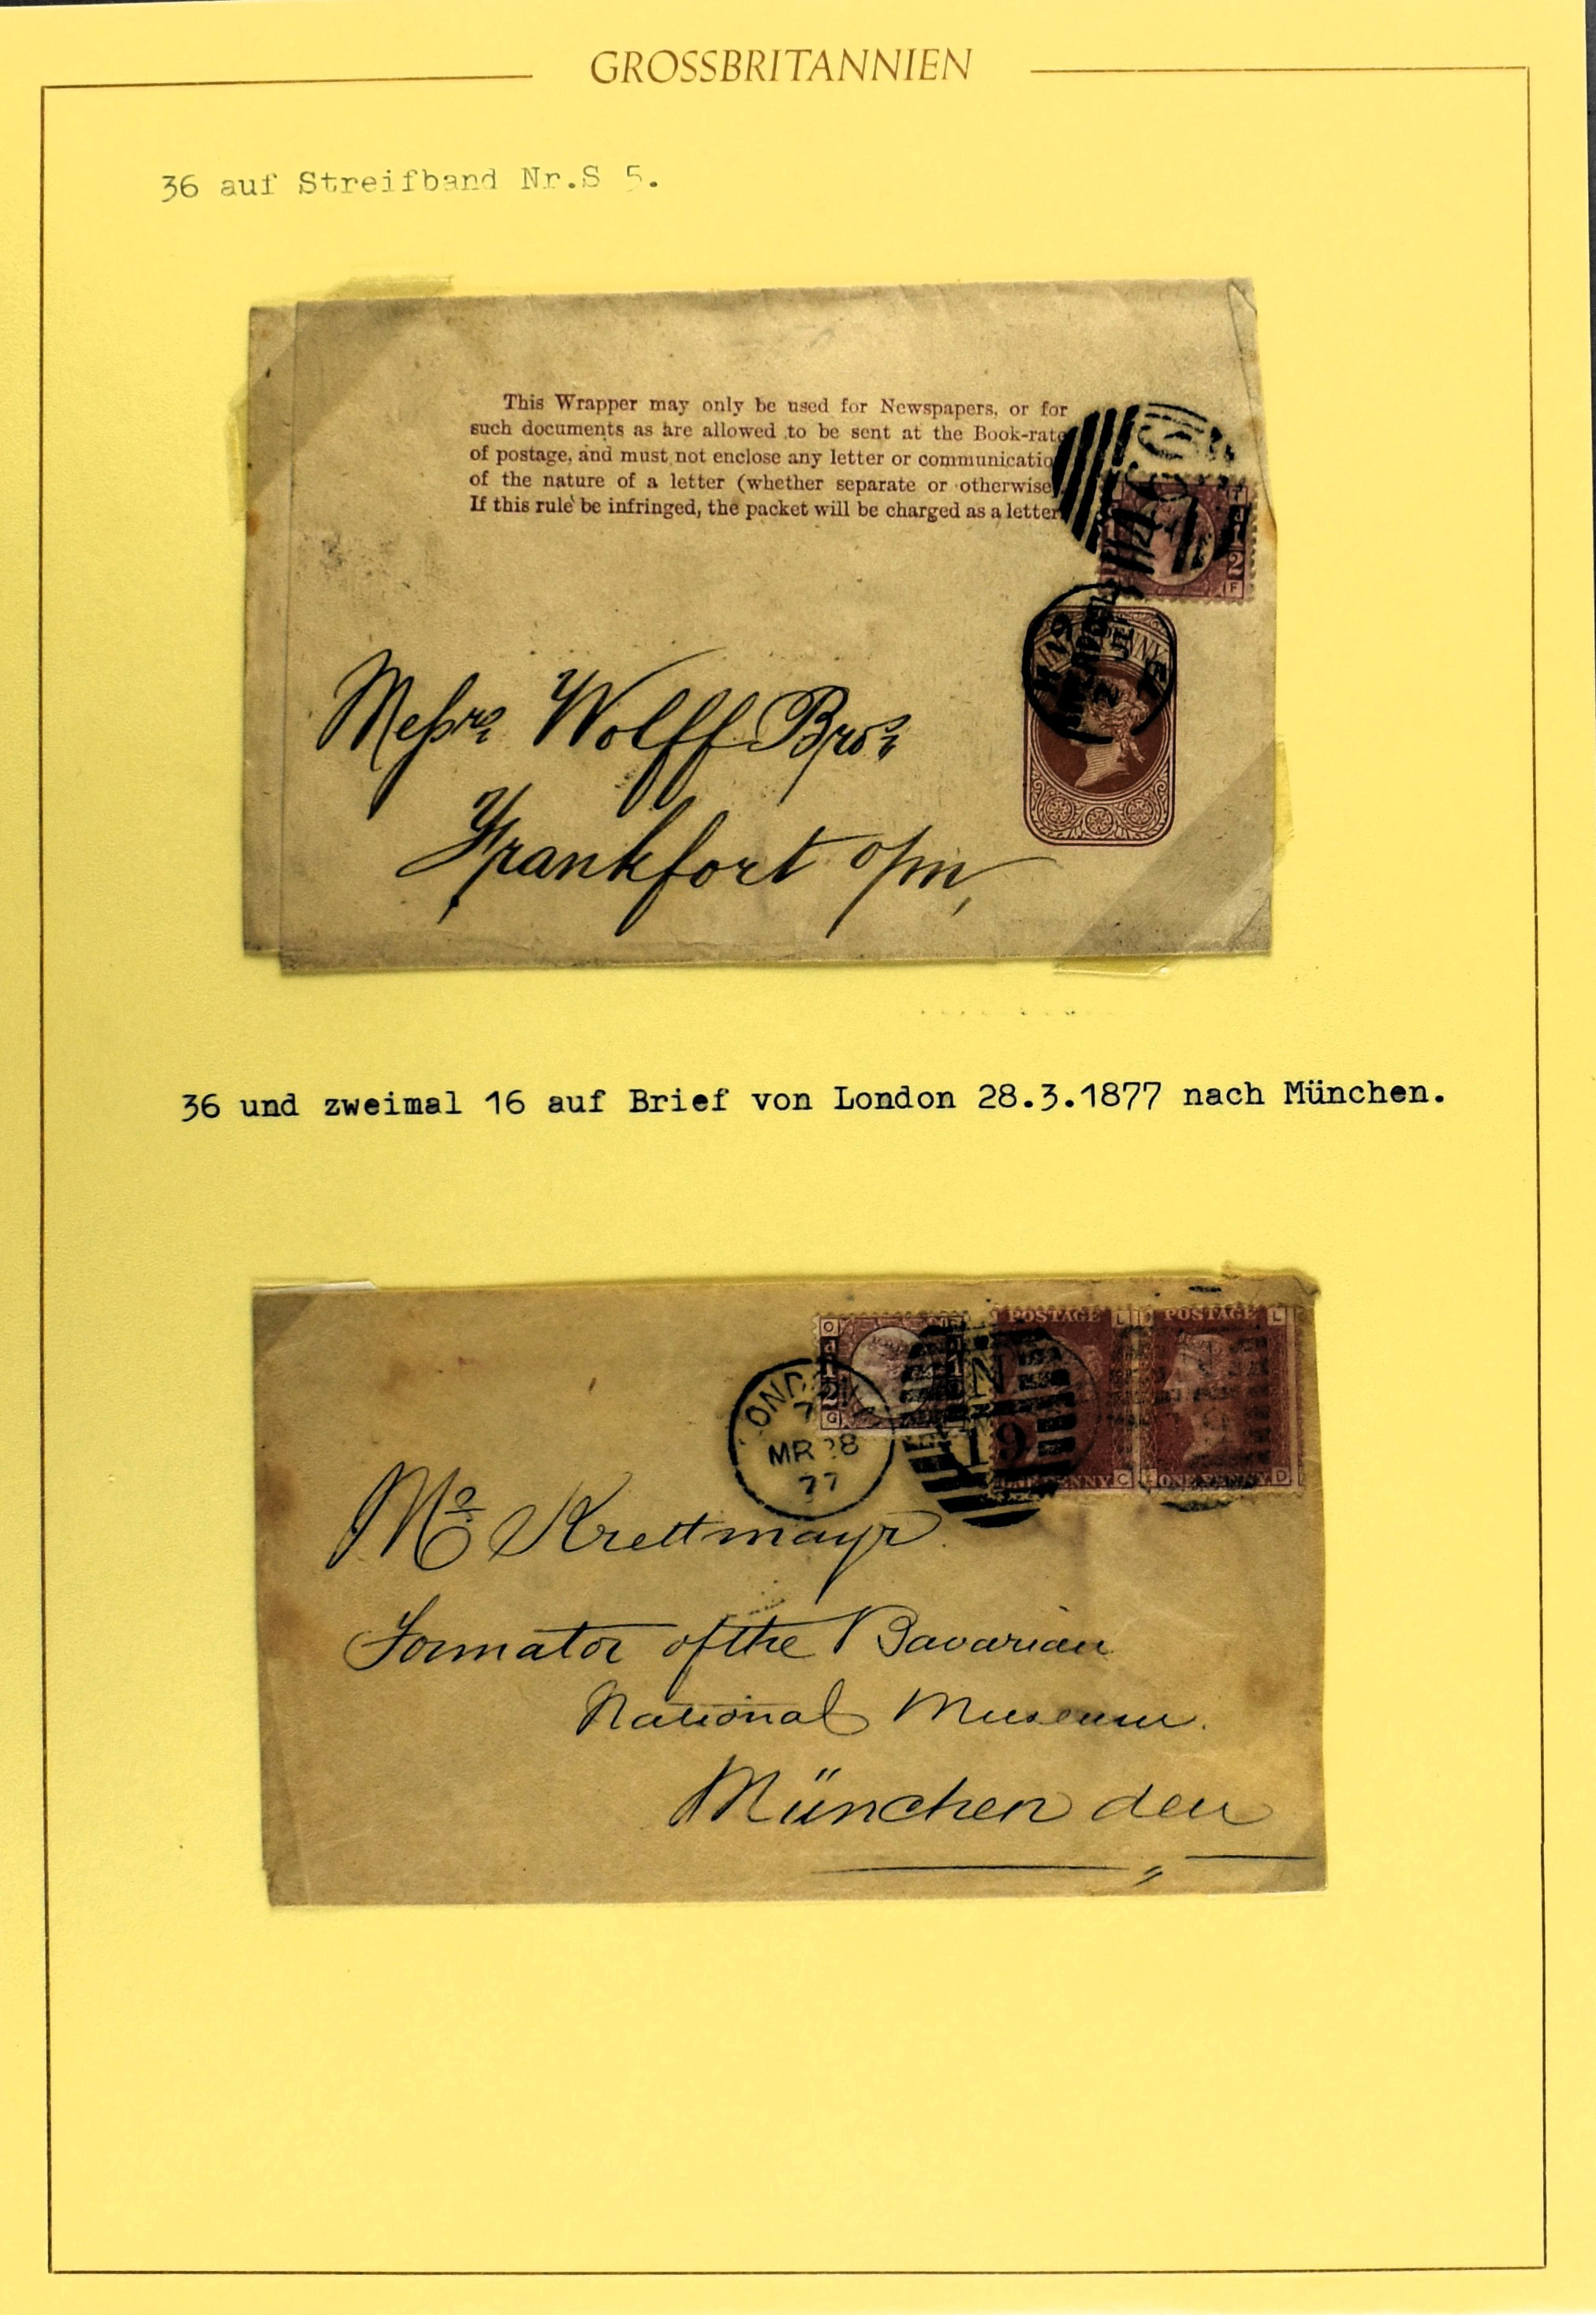 GROSSBRITANNIEN
36 auf Streifband Nr.S 5.
This Wrapper may only be used for Newspapers, or for
such documents as are allowed to be sent at the Book-rate
of postage, and must not enclose any letter or communicatio
of the nature of a letter (whether separate or otherwise
If this rule be infringed, the packet will be charged as a letter
466
2
F
Messrs Wolff Bros
Frankfort o/m,
36 und zweimal 16 auf Brief von London 28.3.1877 nach München.
O
POSTAGE L
POSTAGE L
G
N
19
PENNY C
ONE PENNY D
LONDON
7
MR 28
77
Mr Krettmayr
Formator of the Bavarian
National Museum.
München den